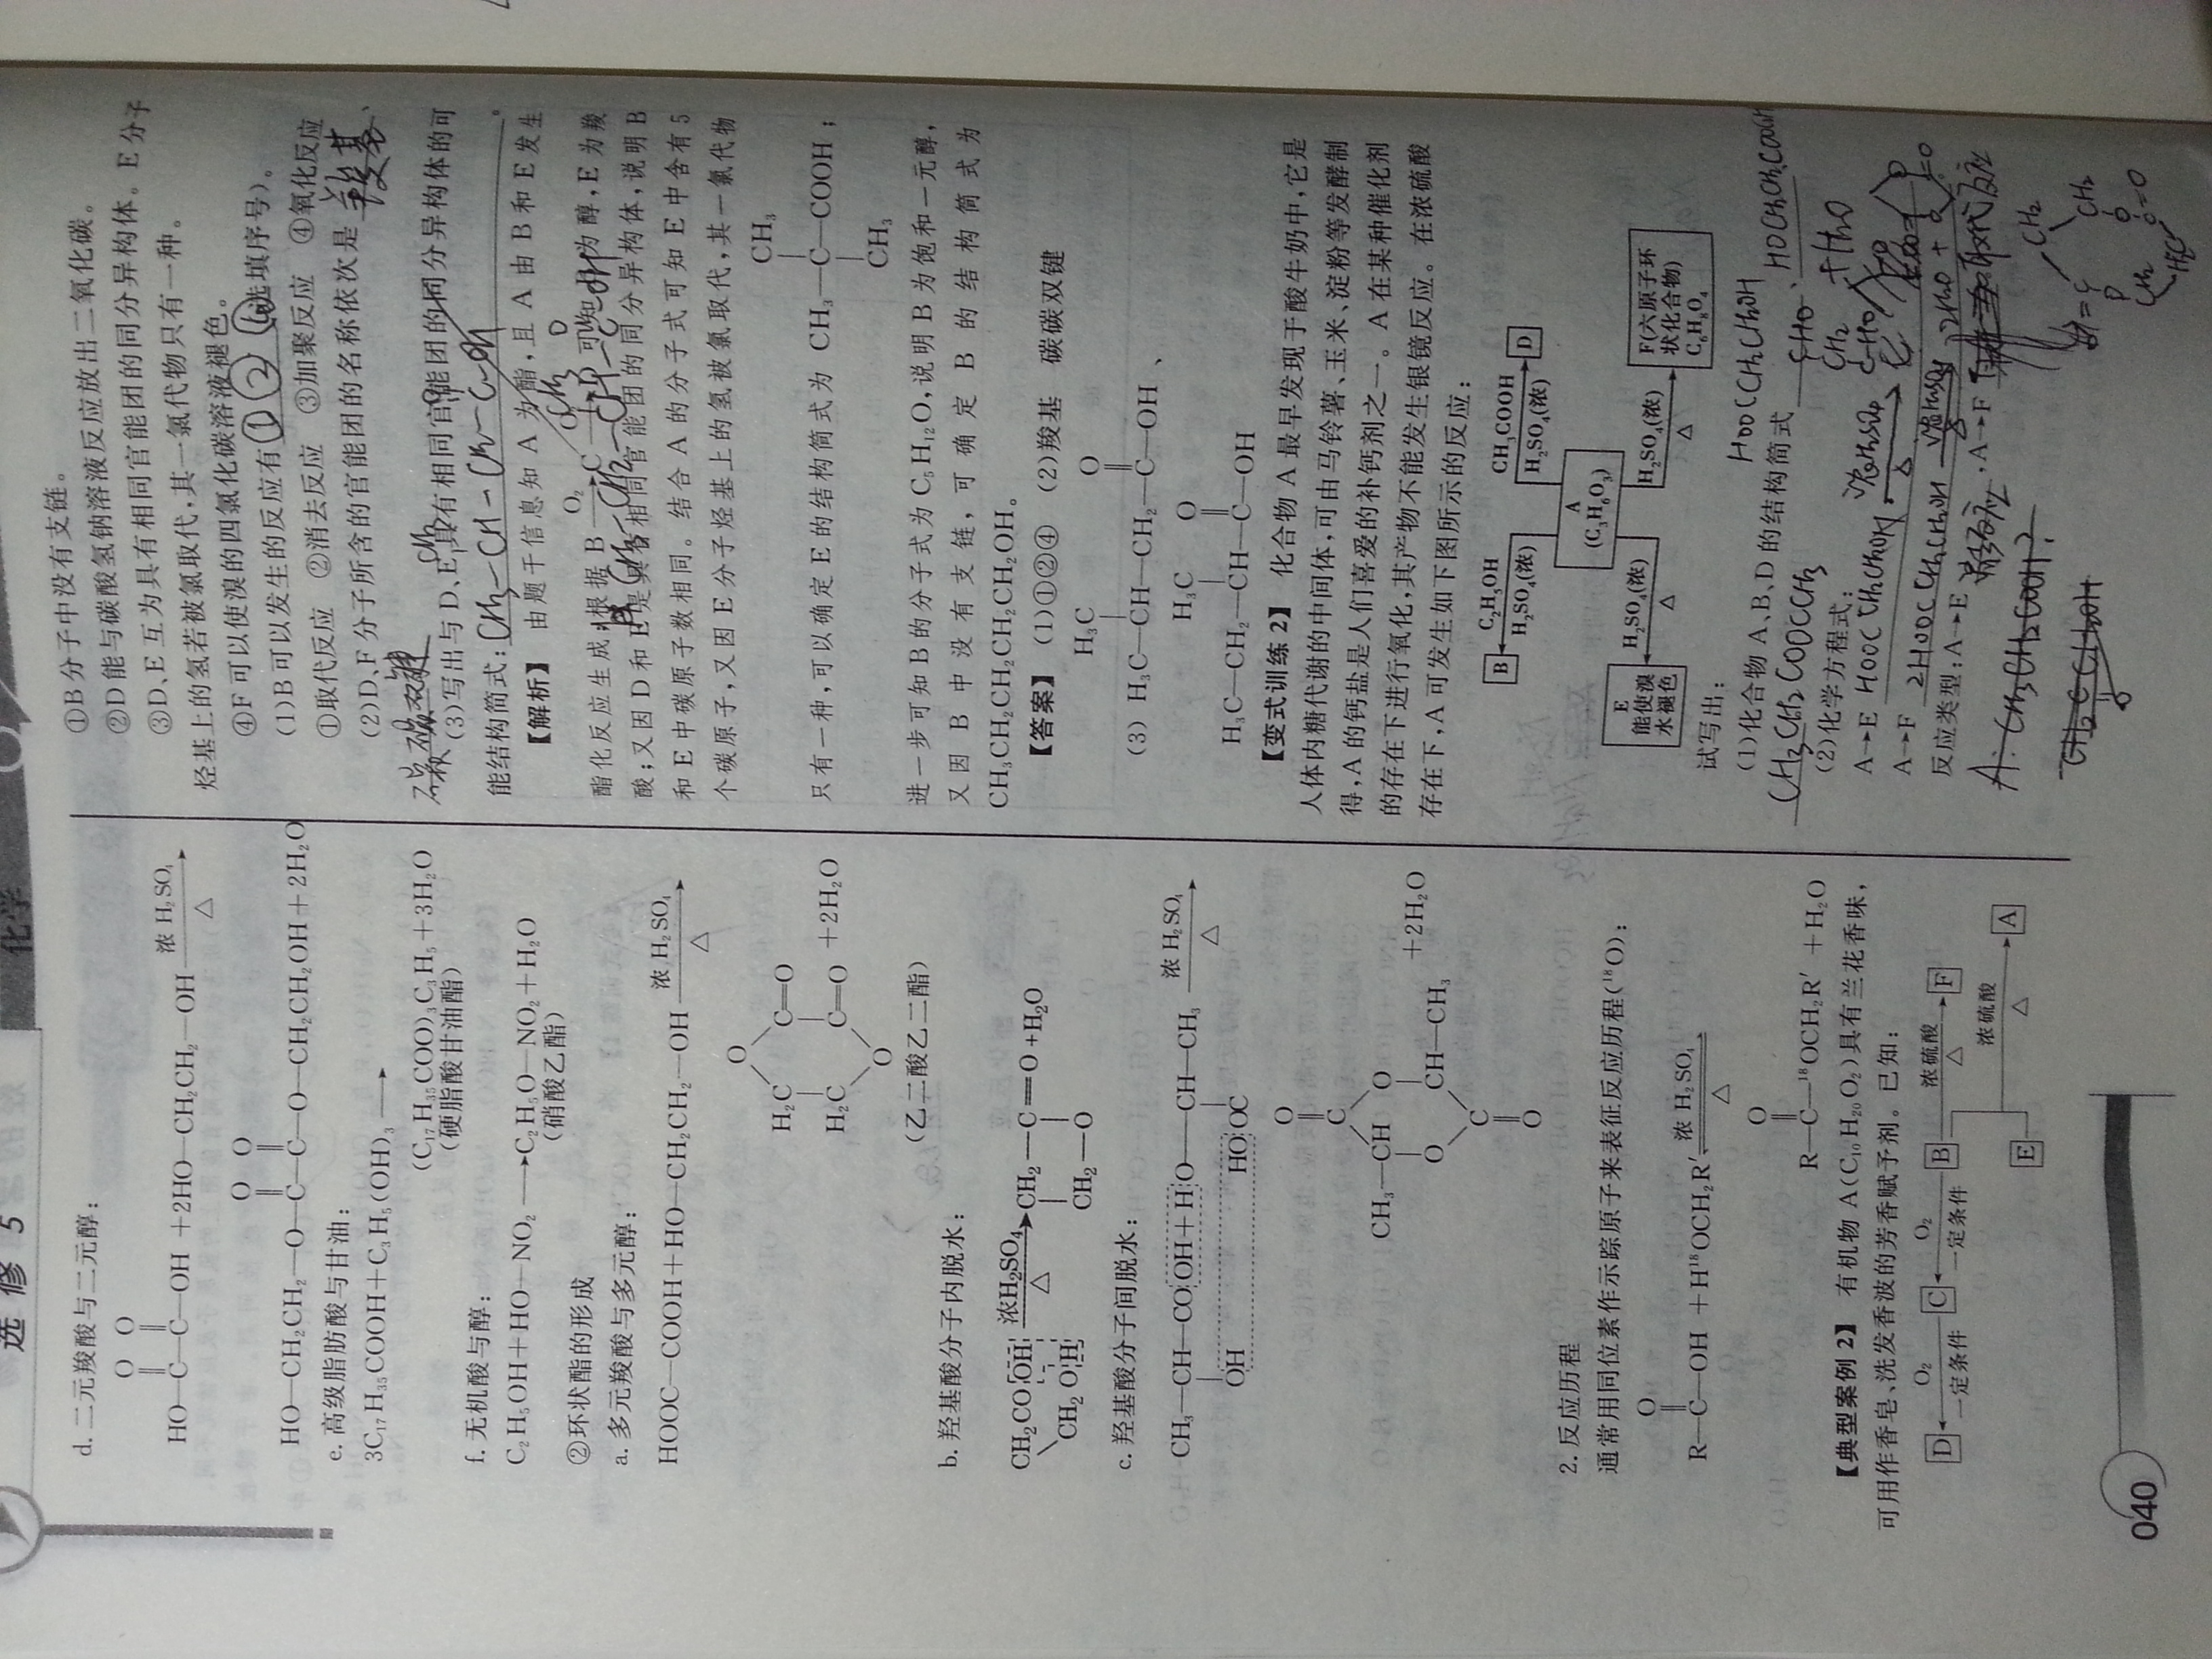 选修5
化学
d. 二元羧酸与二元醇：
O O
HO—C—C—OH +2HO—CH₂CH₂—OH 浓 H₂SO₄ △
O O
HO—CH₂CH₂—O—C—C—O—CH₂CH₂OH+2H₂O
e. 高级脂肪酸与甘油：
3C₁₇H₃₅COOH+C₃H₅(OH)₃→
(C₁₇H₃₅COO)₃C₃H₅+3H₂O
(硬脂酸甘油酯)
f. 无机酸与醇：
C₂H₅OH+HO—NO₂→C₂H₅O—NO₂+H₂O
(硝酸乙酯)
②环状酯的形成
a. 多元羧酸与多元醇：
HOOC—COOH+HO—CH₂CH₂—OH 浓 H₂SO₄ △
O
H₂C C=O
H₂C C=O +2H₂O
O
(乙二酸乙二酯)
b. 羟基酸分子内脱水：
CH₂CO OH 浓H₂SO₄ △ CH₂—C=O+H₂O
CH₂ O H CH₂—O
c. 羟基酸分子间脱水：
CH₃—CH—CO OH+H O—CH—CH₃ 浓 H₂SO₄ △
OH HO OC
O
C
CH₃—CH O
+2H₂O
O CH—CH₃
C
O
2. 反应历程
通常用同位素作示踪原子来表征反应历程(¹⁸O)：
O
R—C—OH +H¹⁸OCH₂R′ 浓 H₂SO₄ △
O
R—C—¹⁸OCH₂R′ +H₂O
【典型案例2】 有机物 A(C₁₀H₂₀O₂)具有兰花香味，
可用作香皂、洗发香波的芳香赋予剂。已知：
D ← O₂ 一定条件 C ← O₂ 一定条件 B 浓硫酸 △ → F
浓硫酸 △ → A
E
040
①B分子中没有支链。
②D能与碳酸氢钠溶液反应放出二氧化碳。
③D、E互为具有相同官能团的同分异构体。E分子
烃基上的氢若被氯取代，其一氯代物只有一种。
④F可以使溴的四氯化碳溶液褪色。
(1)B可以发生的反应有①②④(选填序号)。
①取代反应 ②消去反应 ③加聚反应 ④氧化反应
(2)D、F分子所含的官能团的名称依次是 羧基、
碳碳双键
CH₃ O
(3)写出与D、E具有相同官能团的同分异构体的可
能结构简式：CH₃—CH—CH₂—C—OH。
【解析】 由题干信息知 A 为酯，且 A 由 B 和 E 发生
CH₃ O
酯化反应生成；根据 B O₂→C O₂→D 可知 B 为醇，E 为羧
CH₃—CH₂—CH—C—OH
酸；又因 D 和 E 是具有相同官能团的同分异构体，说明 B
和 E 中碳原子数相同。结合 A 的分子式可知 E 中含有 5
个碳原子，又因 E 分子烃基上的氢被氯取代，其一氯代物
CH₃
只有一种，可以确定 E 的结构简式为 CH₃—C—COOH；
CH₃
进一步可知 B 的分子式为 C₅H₁₂O，说明 B 为饱和一元醇，
又因 B 中没有支链，可确定 B 的结构简式为
CH₃CH₂CH₂CH₂CH₂OH。
【答案】 (1)①②④ (2)羧基 碳碳双键
H₃C O
(3) H₃C—CH—CH₂—C—OH 、
H₃C O
H₃C—CH₂—CH—C—OH
【变式训练2】 化合物 A 最早发现于酸牛奶中，它是
人体内糖代谢的中间体，可由马铃薯、玉米、淀粉等发酵制
得，A 的钙盐是人们喜爱的补钙剂之一。A 在某种催化剂
的存在下进行氧化，其产物不能发生银镜反应。在浓硫酸
存在下，A 可发生如下图所示的反应：
B C₂H₅OH H₂SO₄(浓) CH₃COOH H₂SO₄(浓) D
A
(C₃H₆O₃)
E 能使溴水褪色 H₂SO₄(浓) △ H₂SO₄(浓) △ F(六原子环状化合物) C₆H₈O₄
试写出：
HOOCCH₂CH₂OH
(1)化合物 A、B、D 的结构简式
CH₃CH₂COOCCH₃
(2)化学方程式：
CHO
CH₂ +H₂O
CHO
A→E HOOCCH₂CH₂OH 浓H₂SO₄ △
A→F 2HOOCCH₂CH₂OH 浓H₂SO₄ △ 2H₂O +
反应类型：A→E 消去反应，A→F 取代反应
A: CH₃CH₂COOH?
CH₂ C CH₂OH
O
CH₂
CH₂
O
C=O
CH₂
H₂C